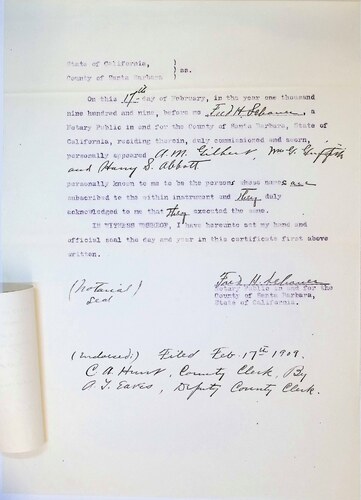 State of California,
) ss.
County of Santa Barbara
On this 17th day of February, in the year one thousand
nine hundred and nine, before me Fred H. Schauer, a
Notary Public in and for the County of Santa Barbara, State of
California, residing therein, duly commissioned and sworn,
personally appeared A. M. Gilbert, Wm G. Griffith
and Harry S. Abbott
personally known to me to be the persons whose names are
subscribed to the within instrument and they duly
acknowledged to me that they executed the same.
IN WITNESS WHEREOF, I have hereunto set my hand and
official seal the day and year in this certificate first above
written.
(Notarial)
Seal
Fred H. Schauer
Notary Public in and for the
County of Santa Barbara,
State of California.
(Endorsed.) Filed Feb. 17th 1909.
C. A. Hunt, County Clerk, By
A. T. Eaves, Deputy County Clerk.